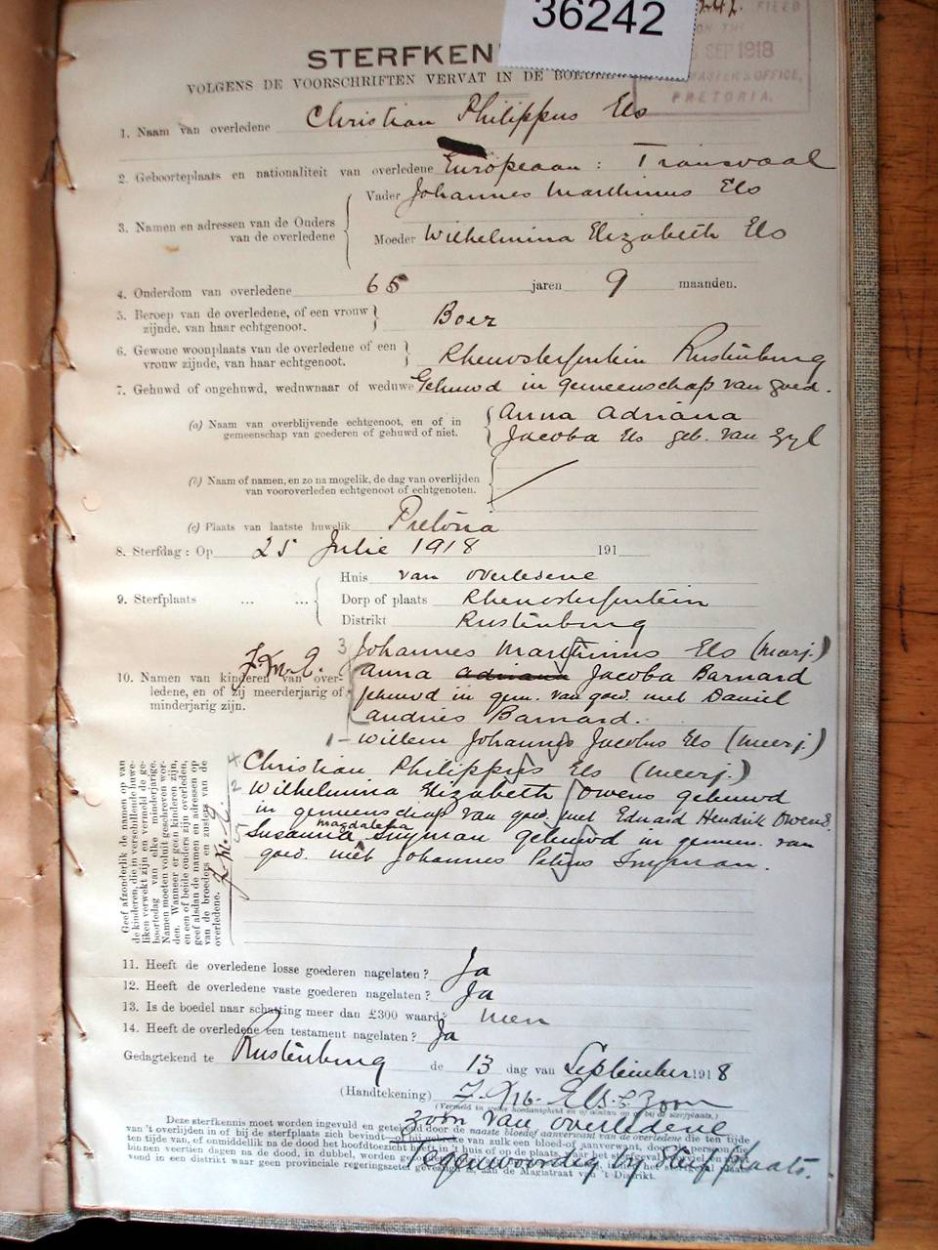 36242
FILED
ON THE
SEP 1918
MASTER'S OFFICE,
PRETORIA.
STERFKEN
VOLGENS DE VOORSCHRIFTEN VERVAT IN DE
1. Naam van overledene Christian Philippus Els
2. Geboorteplaats en nationaliteit van overledene Europeaan : Transvaal
3. Namen en adressen van de Ouders van de overledene
Vader Johannes Marthinus Els
Moeder Wilhelmina Elizabeth Els
4. Onderdom van overledene 65 jaren 9 maanden.
5. Beroep van de overledene, of een vrouw zijnde, van haar echtgenoot. Boer
6. Gewone woonplaats van de overledene of een vrouw zijnde, van haar echtgenoot. Rhenosterfontein Rustenburg
7. Gehuwd of ongehuwd, weduwnaar of weduwe Gehuwd in gemeenschap van goed.
(a) Naam van overblijvende echtgenoot, en of in gemeenschap van goederen of gehuwd of niet.
Anna Adriana
Jacoba Els geb. van Zyl
(b) Naam of namen, en zo na mogelik, de dag van overlijden
van vooroverleden echtgenoot of echtgenoten.
(c) Plaats van laatste huwelik Pretoria
8. Sterfdag : Op 25 Julie 1918 191
9. Sterfplaats ... ...
Huis van overledene
Dorp of plaats Rhenosterfontein
Distrikt Rustenburg
10. Namen van kinderen van overledene, en of zij meerderjarig of minderjarig zijn.
3 Johannes Marthinus Els (marj.)
Anna Adriana Jacoba Barnard
gehuwd in gem. van goed. met Daniel
Andries Barnard.
1 - Willem Johannes Jacobus Els (meerj.)
4 Christian Philippus Els (meerj.)
2 Wilhelmina Elizabeth Owens gehuwd
in gemeenschap van goed. met Eduard Hendrik Owens.
5 Susanna Magdalena Snyman gehuwd in gemeen. van
goed. met Johannes Petrus Snyman.
Geef afzonderlik de namen op van
de kinderen, die in verschillende huwe-
liken verwekt zijn en vermeld de ge-
boortedag van elke minderjarige.
Namen moeten voluit geschreven wor-
den. Wanneer er geen kinderen zijn,
en een of beide ouders zijn overleden,
geef alsdan de namen en adressen op
van de broeders en zusters van de
overledene.
11. Heeft de overledene losse goederen nagelaten? Ja
12. Heeft de overledene vaste goederen nagelaten? Ja
13. Is de boedel naar schatting meer dan £300 waard?
14. Heeft de overledene een testament nagelaten? Ja
Gedagtekend te Rustenburg de 13 dag van September 1918
(Handtekening) Els zoon
zoon van overledene
tegenwoordig by Sterfplaats.
Deze sterfkennis moet worden ingevuld en getekend door de naaste bloedaanverwant van de overledene die ten tijde
van 't overlijden in of bij de sterfplaats zich bevindt
ten tijde van, of onmiddellik na de dood het hoofdtoezicht
binnen veertien dagen na de dood, in dubbel, worden
vond in een distrikt waar geen provinciale regeringszetel gevestigd is, aan de Magistraat van 't Distrikt.